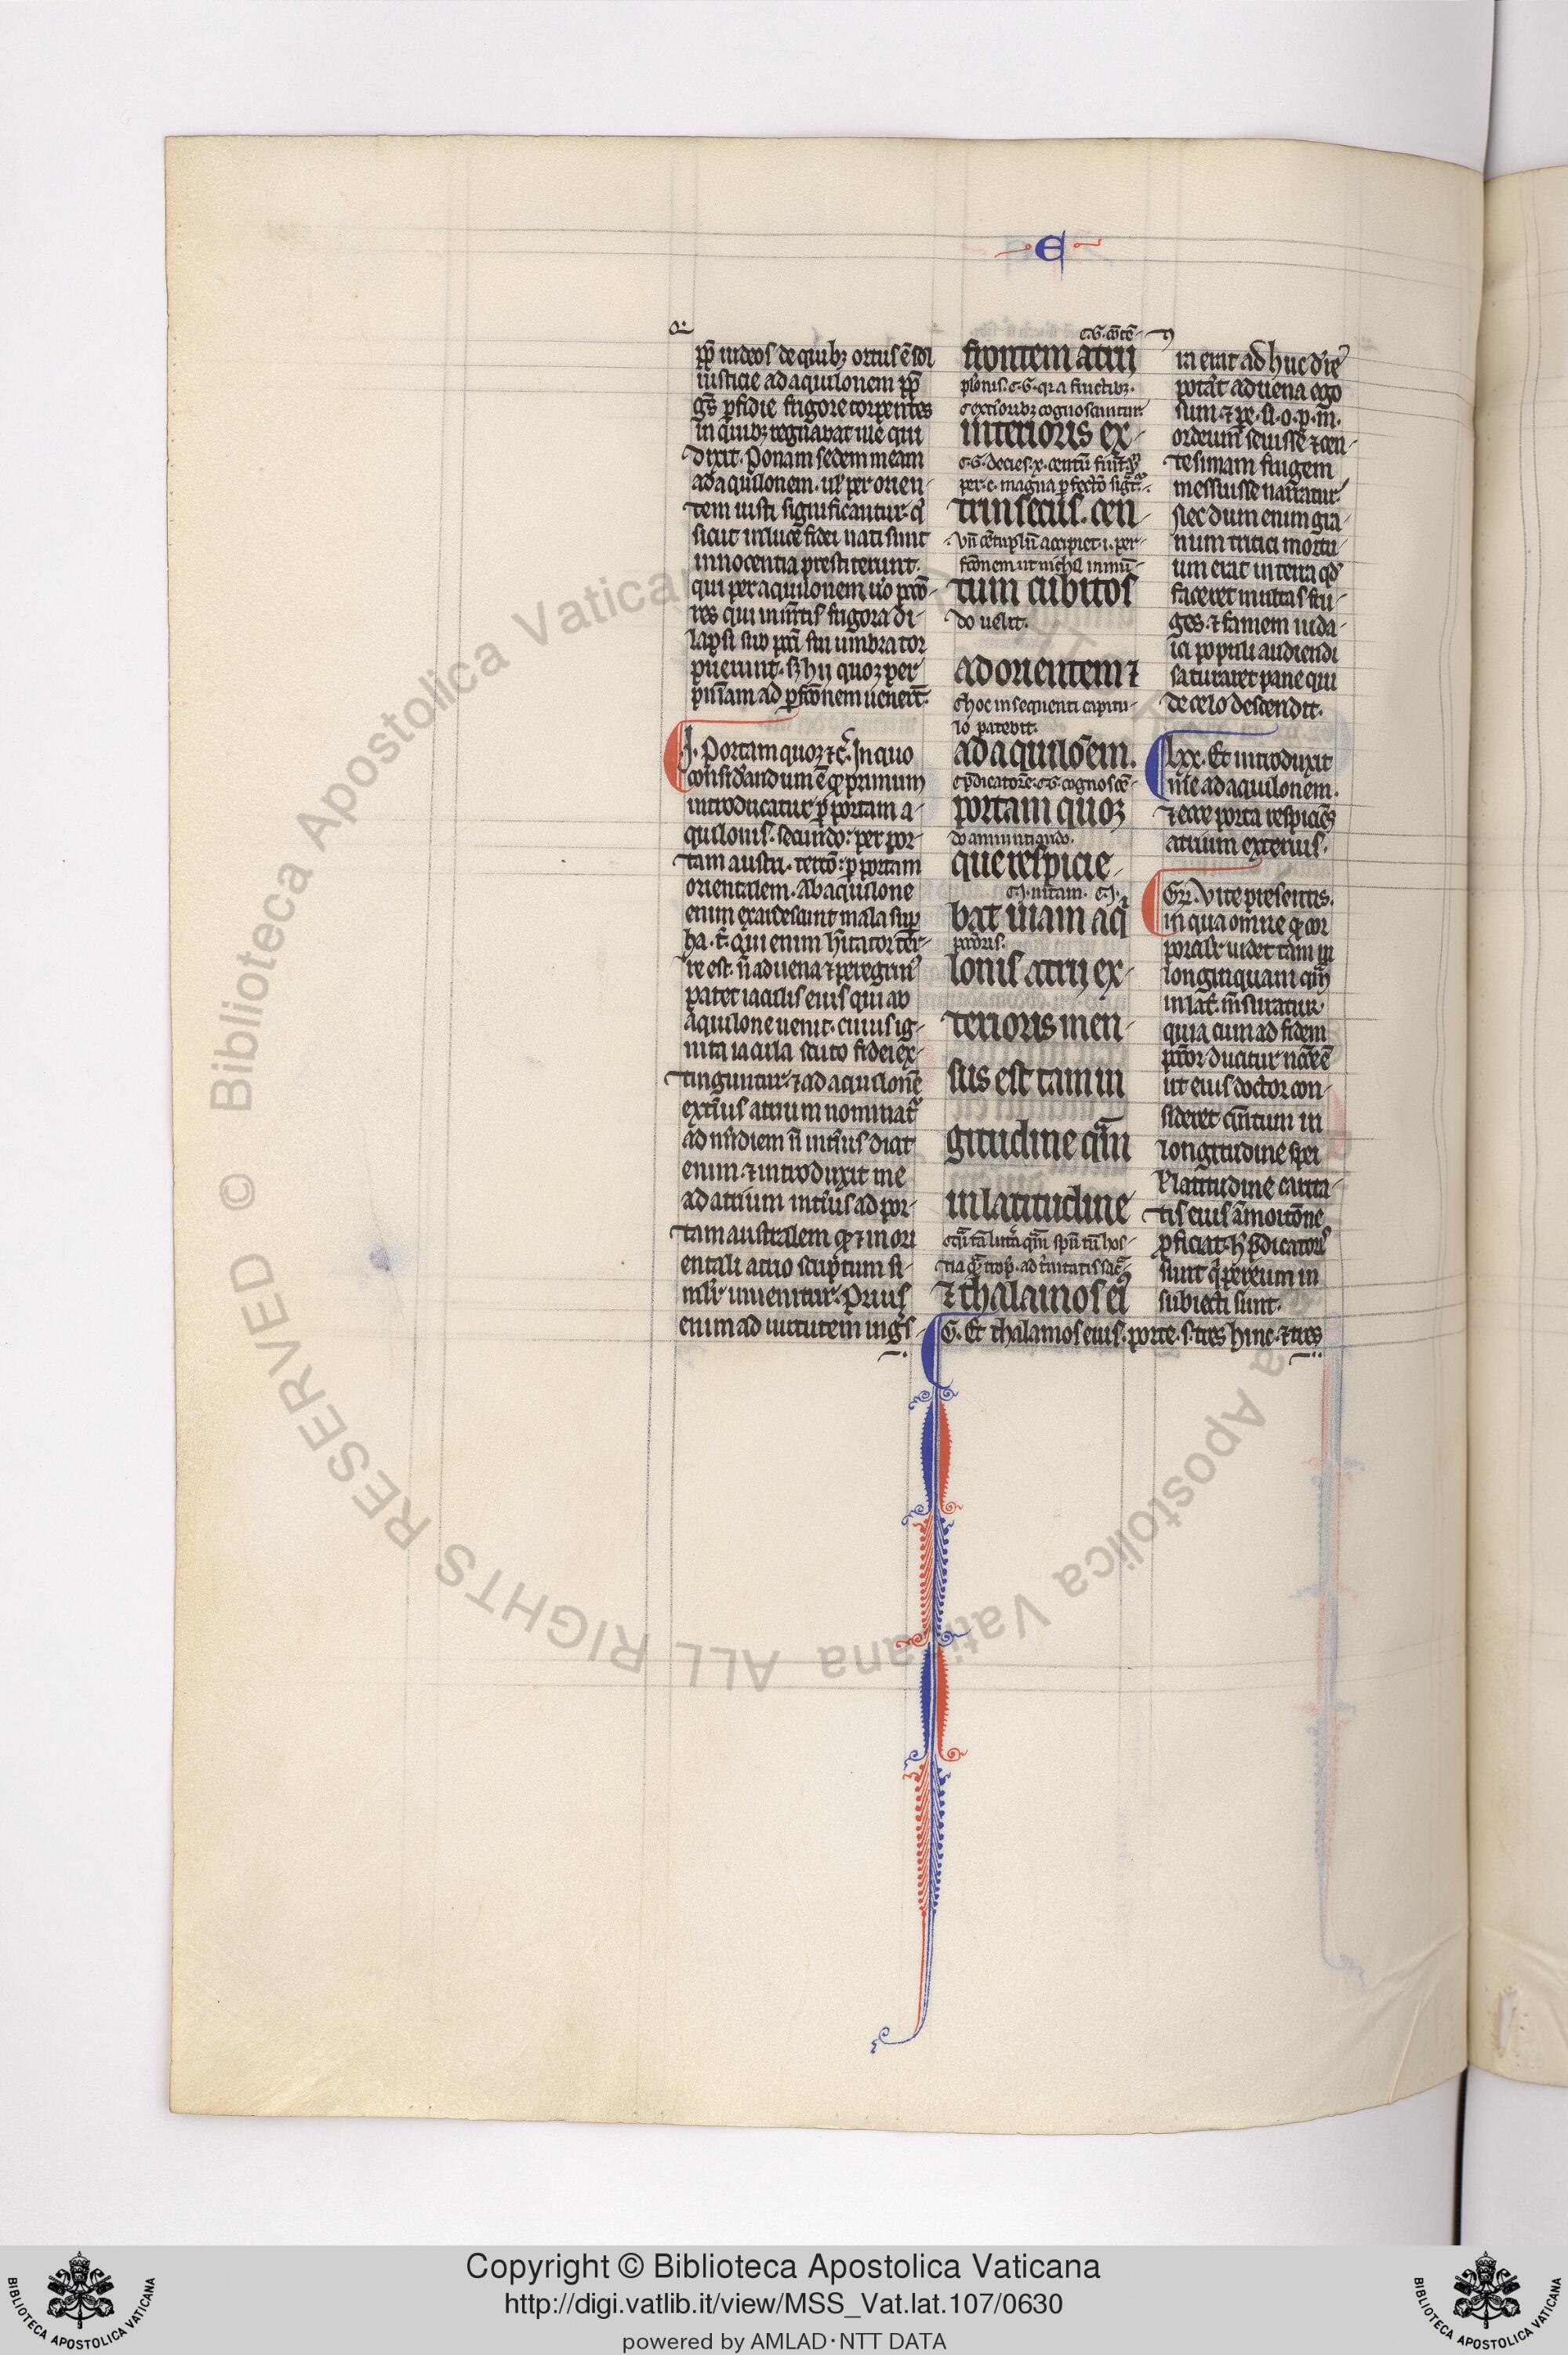 E
pp̄ iudeos de quibꝫ ortus ē sol
iusticie ad aquilonem pp̄
gēs ꝑfidie frigore torpentes
in quibꝫ regnabat ille qui
dixit. Ponam sedem meam
ad aquilonem. ul̓ per orien-
tem iusti significantur. q̓
sicut in luce fidei nati sunt
innocentia prestiterunt.
qui per aquilonem u̓o pccō-
res qui in mētis frigora di-
lapsi sub pcc̄i sui umbra tor
puerunt. sꝫ hii quoꝫ per
pn̄iam ad ꝑfcōnem uener̄t.
J. Portam quoꝫ ⁊c̄. In quo
considandum ē qꝫ primum
introducatur ꝑ portam a-
quilonis. secundo: per por-
tam austri. tercō: ꝑ portam
orientalem. Ab aquilone
enim exardescunt mala suꝑ
ha. t̄. qui enim hītator ter-
re est. n̄ aduena ⁊ peregrin̓
patet iaculis eius qui ab
aquilone uenit. cuius ig-
nita iacula scuto fidei ex-
tinguntur. ⁊ ad aquilonē
exteri̓us atrium nominat̓
ad meridiem n̄ inti̓us dicit
enim. ⁊ introduxit me
ad atrium inti̓us ad por-
tam australem qꝫ ⁊ in ori
entali atrio scriptum si-
milr̄ inuenitur. Prius
enim ad uirtutem ingr̄s
frontem atrii
interioris ex-
trinsecus. cen-
tum cubitos
do uelit.
ad orientem ⁊
c̄ hoc in sequenti capitu-
lo patebit.
ad aquilōem.
portam quoꝫ
do annuntiando.
que respicie-
bat uiam aq̓
lonis atrij ex-
terioris men-
sus est tam in
gitudine qm̄
in latitudine
⁊ thalamos ei̓
in erit ad huc die
potat̓ aduena ego
sum ⁊ pe. s. o. p. m̄.
ordeum̄ seuisse ⁊ cen-
tesimam frugem
messuisse narratur
nec dum enim gra-
num tritici mortu-
um erat in terra qd̓
faceret multas fru-
ges. ⁊ famem iuda-
ici populi audiendi
saturaret pane qui
de celo descendit.
lxx. Et introduxit
me ad aquilonem.
⁊ ecce porta respiciēs
atrium exterius.
Gr̄. Vite presentis.
in qua omne qꝫ cor
poralr̄ uidet̓ tam in
longinquam qm̄
in lat̄. mensuratur
quia cum ad fidem
pcc̄or ducitur nccē ē
ut eius doctor con-
sideret qn̄tum in
longitudine spei
ul̓ latitudine carita-
tis eius amonitōne
ꝑficiat. h̓ p̄dicatori̓
sunt q̓ per eum in
subiecti sunt.
G. Et thalamos eius. porte. s. tres hinc. ⁊ tres
Copyright © Biblioteca Apostolica Vaticana
http://digi.vatlib.it/view/MSS_Vat.lat.107/0630
powered by AMLAD·NTT DATA
BIBLIOTECA APOSTOLICA VATICANA
BIBLIOTECA APOSTOLICA VATICANA
© Biblioteca Apostolica Vaticana ALL RIGHTS RESERVED